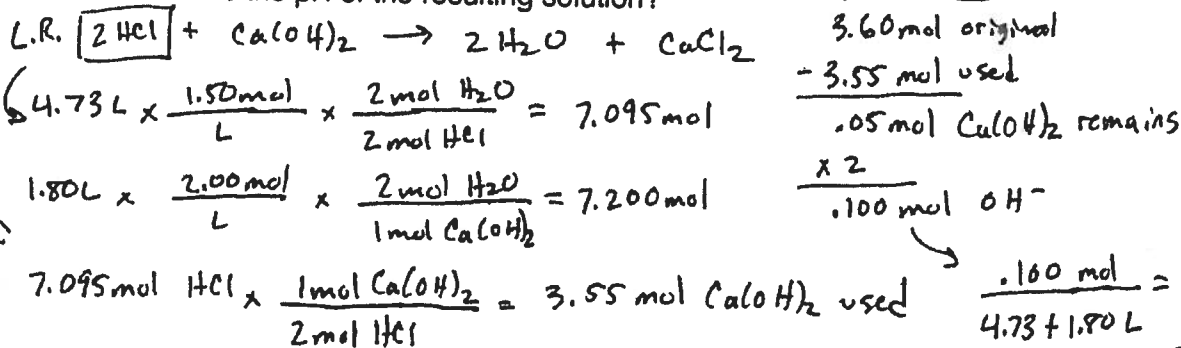 the pH of the resulting solution?
L.R. 2 HCl + Ca(OH)₂ → 2 H₂O + CaCl₂
4.73 L x 1.50 mol / L x 2 mol H₂O / 2 mol HCl = 7.095 mol
1.80 L x 2.00 mol / L x 2 mol H₂O / 1 mol Ca(OH)₂ = 7.200 mol
7.095 mol HCl x 1 mol Ca(OH)₂ / 2 mol HCl = 3.55 mol Ca(OH)₂ used
3.60 mol original
- 3.55 mol used
.05 mol Ca(OH)₂ remains
x 2
.100 mol OH⁻
.100 mol / 4.73 + 1.80 L =